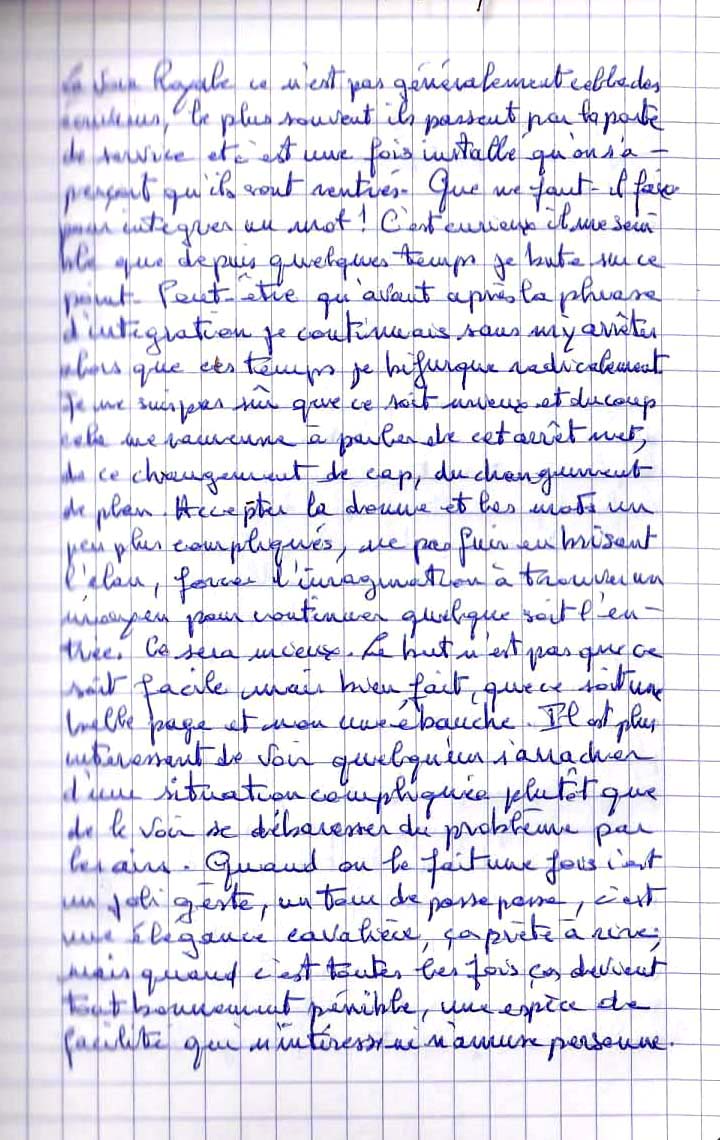 La Voie Royale ce n'est pas généralement celle des
, le plus souvent ils passent par la porte
de service et c'est une fois installé qu'on s'a-
perçoit qu'ils sont rentrés. Que ne faut-il faire
pour intégrer un mot! C'est curieux il me sem
ble que depuis quelques temps je bute sur ce
point. Peut-être qu'avant après la phrase
d'intégration je continuais sans m'y arrêter
alors que ces temps je bifurque radicalement.
Je ne suis pas sûr que ce soit mieux et du coup
cela me à parler de cet arrêt net,
de ce changement de cap, du changement
de plan. Accepter la donne et les mots un
peu plus compliqués, ne pas fuir en brisant
l'élan, forcer l'imagination à trouver un
moyen pour continuer quelque soit l'en-
trée. Ce sera mieux. Le but n'est pas que ce
soit facile mais bien fait, que ce soit une
belle page et non une ébauche. Il est plus
interessant de voir quelqu'un s'arracher
d'une situation compliquée plutôt que
de le voir se débaresser du problème par
les airs. Quand on le fait une fois c'est
un joli geste, un tour de passe passe, c'est
une élégance cavalière, ça prête à rire;
mais quand c'est toutes les fois ça devient
tout bonnement pénible, une espèce de
facilité qui n'intéresse ni n'amuse personne.